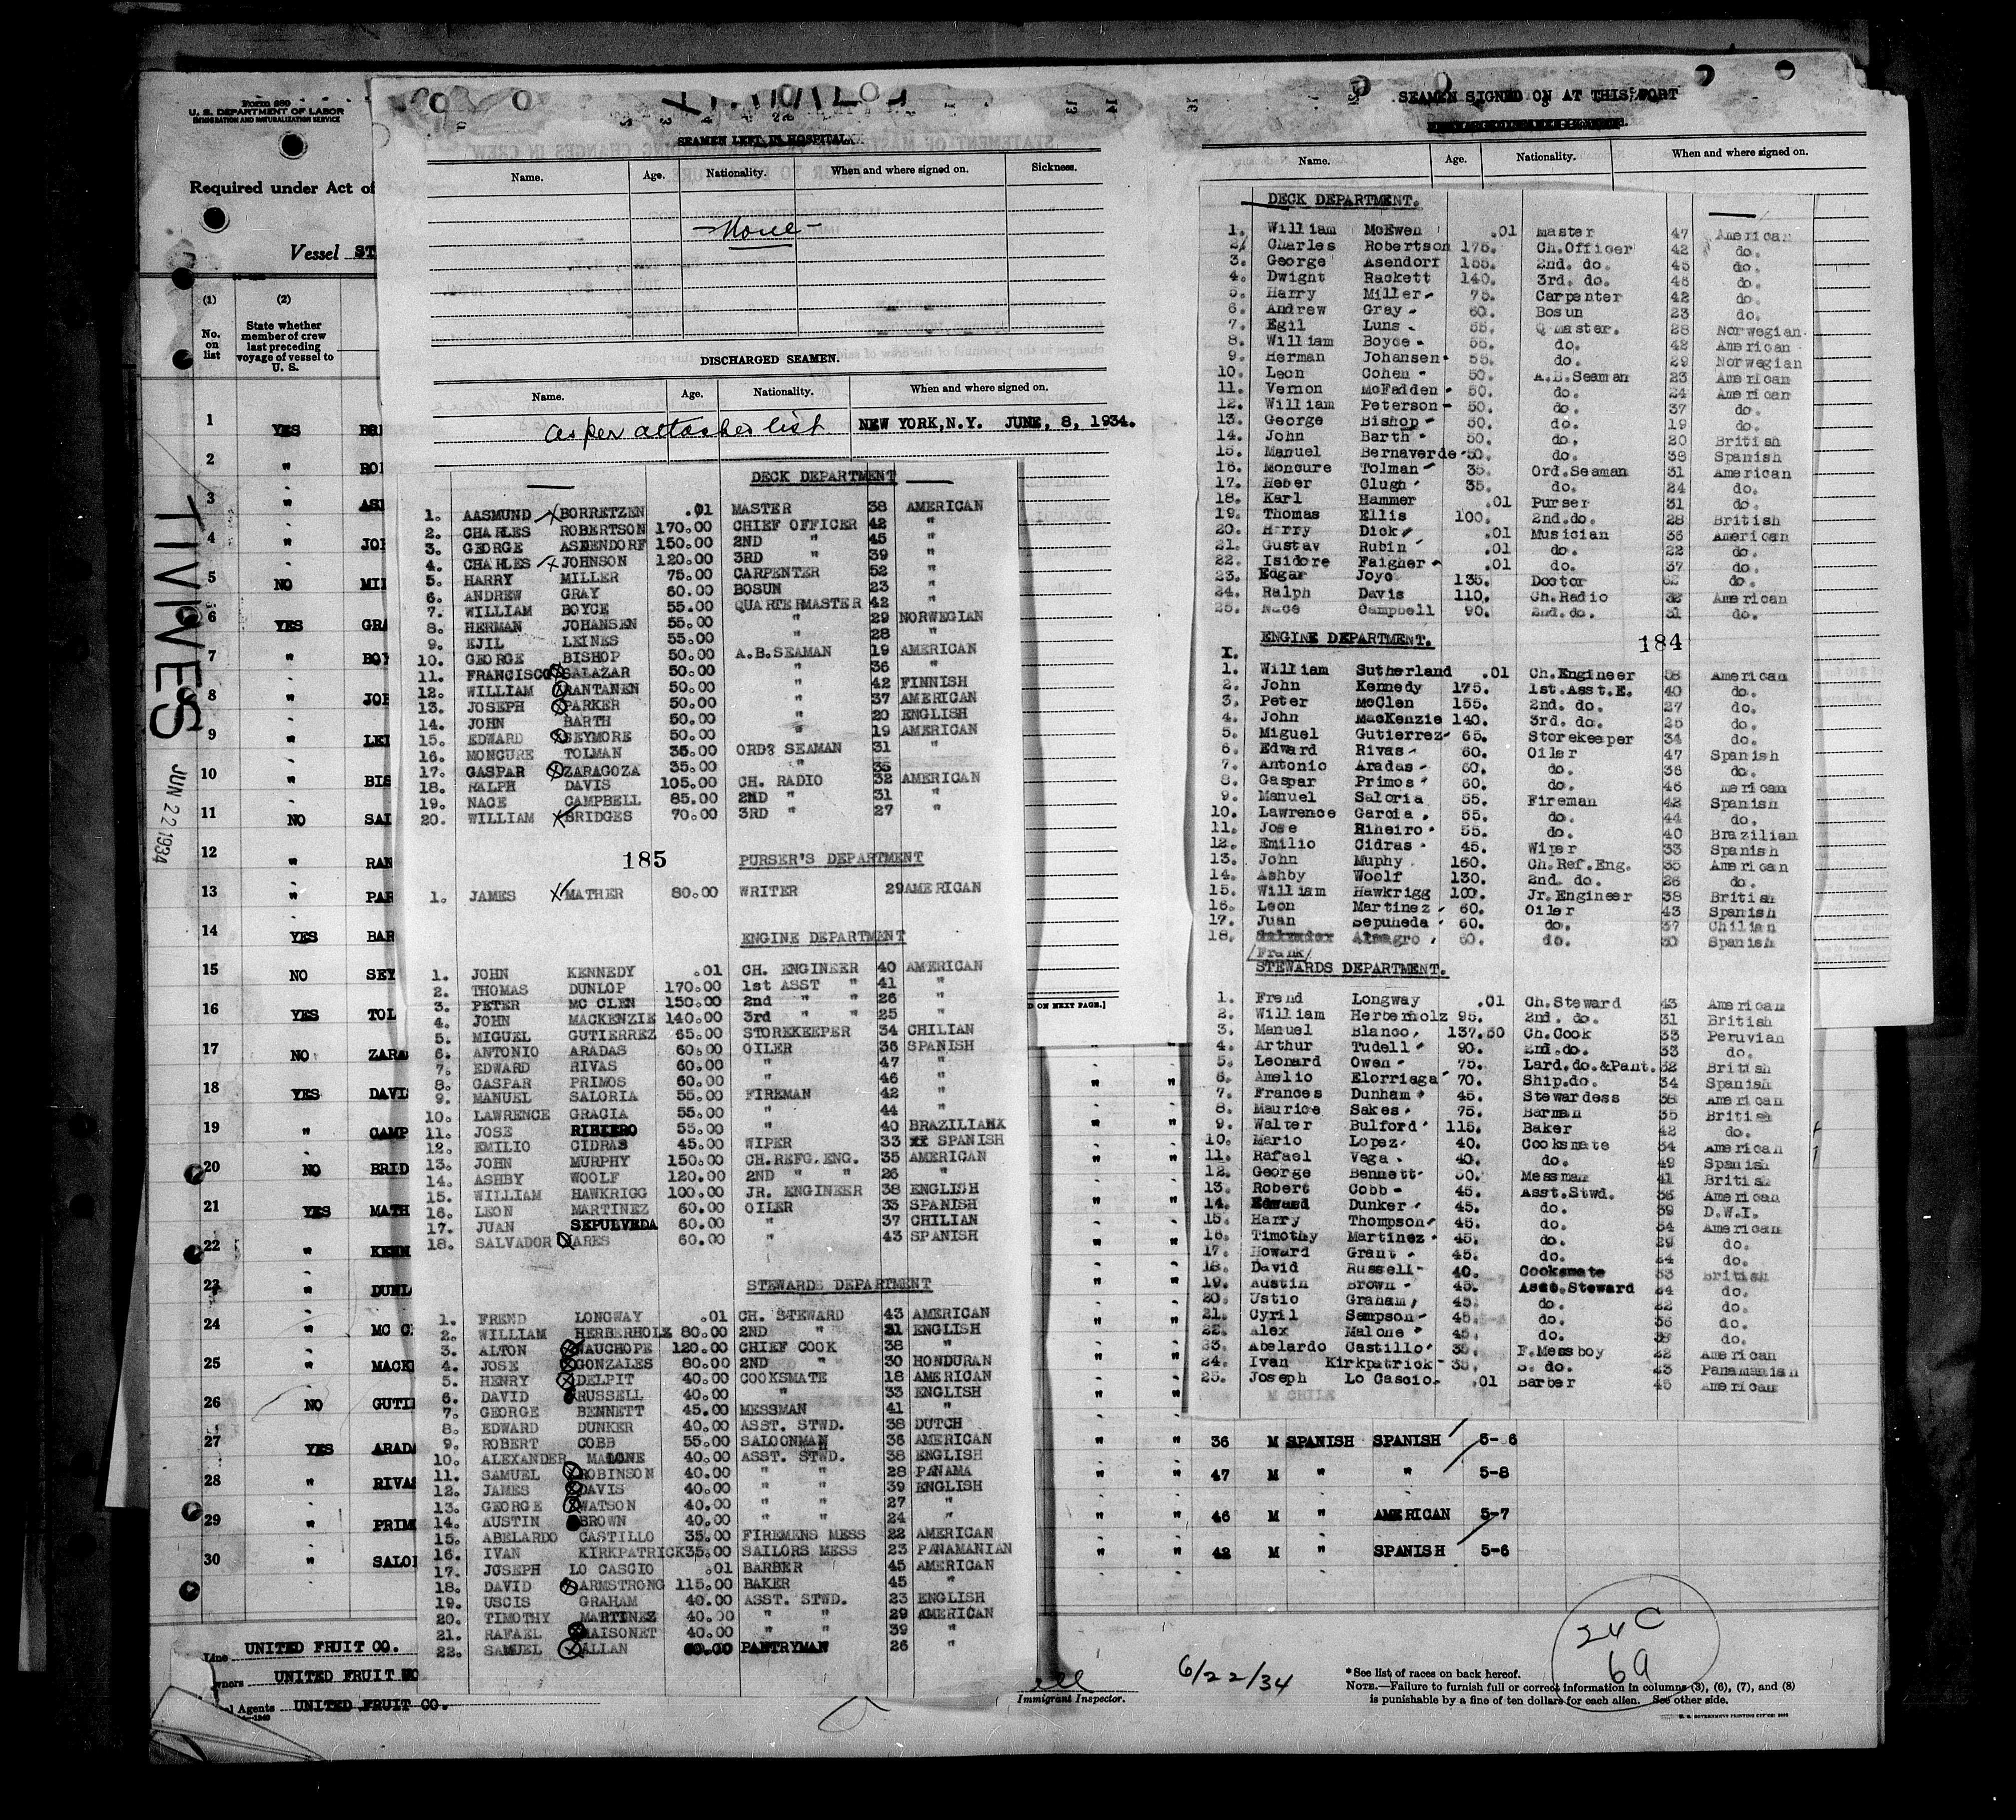 Form 680
U. S. DEPARTMENT OF LABOR
IMMIGRATION AND NATURALIZATION SERVICE
Required under Act of
Vessel ST
(1) (2)
No. on list
State whether member of crew last preceding voyage of vessel to U. S.
1 YES
2 " ROB
3 "
4 " JOH
5 NO MIL
6 YES GRA
7 " BOY
8 " JOH
9 " LEI
10 " BIS
11 NO SAL
12 " RAN
13 " PAR
14 YES BAR
15 NO SEY
16 YES TOL
17 NO ZARA
18 YES DAVI
19 " CAMP
20 NO BRID
21 YES MATH
22 " KENN
23 " DUNL
24 " MC C
25 " MACK
26 NO GUTI
27 YES ARADA
28 " RIVAS
29 " PRIM
30 " SALO
TIVIVES
JUN 22 1934
Line UNITED FRUIT CO.
Owners UNITED FRUIT CO
Agents UNITED FRUIT CO.
SEAMEN LEFT IN HOSPITAL.
Name. Age. Nationality. When and where signed on. Sickness.
- None -
DISCHARGED SEAMEN.
Name. Age. Nationality. When and where signed on.
as per attached list NEW YORK,N.Y. JUNE, 8, 1934.
DECK DEPARTMENT
1. AASMUND BORRETZEN .01 MASTER 38 AMERICAN
2. CHARLES ROBERTSON 170.00 CHIEF OFFICER 42 "
3. GEORGE ASENDORF 150.00 2ND " 45 "
4. CHARLES JOHNSON 120.00 3RD " 39 "
5. HARRY MILLER 75.00 CARPENTER 52 "
6. ANDREW GRAY 60.00 BOSUN 23 "
7. WILLIAM BOYCE 55.00 QUARTERMASTER 42 "
8. HERMAN JOHANSEN 55.00 " 29 NORWEGIAN
9. EJIL LEINES 55.00 " 28 "
10. GEORGE BISHOP 50.00 A.B.SEAMAN 19 AMERICAN
11. FRANCISCO SALAZAR 50.00 " 36 "
12. WILLIAM RANTANEN 50.00 " 42 FINNISH
13. JOSEPH PARKER 50.00 " 37 AMERICAN
14. JOHN BARTH 50.00 " 20 ENGLISH
15. EDWARD SEYMORE 50.00 " 19 AMERICAN
16. MONCURE TOLMAN 35.00 ORD? SEAMAN 31 "
17. GASPAR ZARAGOZA 35.00 " 35
18. RALPH DAVIS 105.00 CH. RADIO 32 AMERICAN
19. NACE CAMPBELL 85.00 2ND " 31 "
20. WILLIAM BRIDGES 70.00 3RD " 27 "
185 PURSER'S DEPARTMENT
1. JAMES MATHER 80.00 WRITER 29 AMERICAN
ENGINE DEPARTMENT
1. JOHN KENNEDY .01 CH. ENGINEER 40 AMERICAN
2. THOMAS DUNLOP 170.00 1st ASST " 41 "
3. PETER MC CLEN 150.00 2nd " " 26 "
4. JOHN MACKENZIE 140.00 3rd " " 25 "
5. MIGUEL GUTIERREZ 65.00 STOREKEEPER 34 CHILIAN
6. ANTONIO ARADAS 60.00 OILER 36 SPANISH
7. EDWARD RIVAS 60.00 " 47 "
8. GASPAR PRIMOS 60.00 " 46 "
9. MANUEL SALORIA 55.00 FIREMAN 42 "
10. LAWRENCE GRACIA 55.00 " 44 "
11. JOSE RIBIERO 55.00 " 40 BRAZILIANX
12. EMILIO CIDRAS 45.00 WIPER 33 XX SPANISH
13. JOHN MURPHY 150.00 CH.REFG.ENG. 35 AMERICAN
14. ASHBY WOOLF 120.00 2ND " " 26 "
15. WILLIAM HAWKRIGG 100.00 JR. ENGINEER 38 ENGLISH
16. LEON MARTINEZ 60.00 OILER 33 SPANISH
17. JUAN SEPULVEDA 60.00 " 37 CHILIAN
18. SALVADOR ARES 60.00 " 43 SPANISH
STEWARDS DEPARTMENT
1. FREND LONGWAY .01 CH. STEWARD 43 AMERICAN
2. WILLIAM HERBERHOLZ 80.00 2ND " 31 ENGLISH
3. ALTON WAUCHOPE 120.00 CHIEF COOK 38 "
4. JOSE GONZALES 80.00 2ND " 30 HONDURAN
5. HENRY DELPIT 40.00 COOKSMATE 18 AMERICAN
6. DAVID RUSSELL 40.00 " 33 ENGLISH
7. GEORGE BENNETT 45.00 MESSMAN 41 "
8. EDWARD DUNKER 40.00 ASST. STWD. 38 DUTCH
9. ROBERT COBB 55.00 SALOONMAN 36 AMERICAN
10. ALEXANDER MALONE 40.00 ASST. STWD. 38 ENGLISH
11. SAMUEL ROBINSON 40.00 " " 28 PANAMA
12. JAMES DAVIS 40.00 " " 39 ENGLISH
13. GEORGE WATSON 40.00 " " 27 "
14. AUSTIN BROWN 40.00 " " 24 "
15. ABELARDO CASTILLO 35.00 FIREMENS MESS 22 AMERICAN
16. IVAN KIRKPATRICK 35.00 SAILORS MESS 23 PANAMANIAN
17. JOSEPH LO CASCIO .01 BARBER 45 AMERICAN
18. DAVID ARMSTRONG 115.00 BAKER 45 "
19. USCIS GRAHAM 40.00 ASST. STWD. 23 ENGLISH
20. TIMOTHY MARTINEZ 40.00 " " 29 AMERICAN
21. RAFAEL MAISONET 40.00 " " 39 "
22. SAMUEL ALLAN 60.00 PANTRYMAN 26 "
SEAMEN SIGNED ON AT THIS PORT
Name. Age. Nationality. When and where signed on.
DECK DEPARTMENT.
1. William McEwen .01 Master 47 American
2. Charles Robertson 175. Ch.Officer 42 do.
3. George Asendorf 155. 2nd. do. 45 do.
4. Dwight Rackett 140. 3rd. do. 46 do.
5. Harry Miller 75. Carpenter 42 do.
6. Andrew Gray 60. Bosun 23 do.
7. Egil Luns 55. Q Master. 28 Norwegian
8. William Boyce 55. do. 42 American
9. Herman Johansen 55. do. 29 Norwegian
10. Leon Cohen 50. A.B.Seaman 23 American
11. Vernon McFadden 50. do. 24 American
12. William Peterson 50. do. 37 do.
13. George Bishop 50. do. 19 do.
14. John Barth 50. do. 20 British
15. Manuel Bernaverde 50. do. 38 Spanish
16. Moncure Tolman 35. Ord.Seaman 31 American
17. Heber Clugh 35. do. 24 do.
18. Karl Hammer .01 Purser 31 do.
19. Thomas Ellis 100. 2nd.do. 28 British
20. Harry Dick .01 Musician 36 American
21. Gustav Rubin .01 do. 22 do.
22. Isidore Faigher .01 do. 37 do.
23. Edgar Joyc 135. Doctor 62 do.
24. Ralph Davis 110. Ch.Radio 32 American
25. Nace Campbell 90. 2nd.do. 31 do.
ENGINE DEPARTMENT. 184
I.
1. William Sutherland .01 Ch.Engineer 58 American
2. John Kennedy 175. 1st.Asst.E. 40 do.
3. Peter McClen 155. 2nd. do. 27 do.
4. John MacKenzie 140. 3rd. do. 25 do.
5. Miguel Gutierrez 65. Storekeeper 34 do.
6. Edward Rivas 60. Oiler 47 Spanish
7. Antonio Aradas 60. do. 36 do.
8. Gaspar Primos 60. do. 46 merican
9. Manuel Saloria 55. Fireman 42 Spanish
10. Lawrence Garcia 55. do. 44 do.
11. Jose Riheiro 55. do. 40 Brazilian
12. Emilio Cidras 45. Wiper 33 Spanish
13. John Muphy 160. Ch.Ref.Eng. 35 American
14. Ashby Woolf 130. 2nd. do. 26 do.
15. William Hawkrigg 100. Jr.Engineer 38 British
16. Leon Martinez 60. Oiler 43 Spanish
17. Juan Sepuheda 60. do. 37 Chilian
18. Salvador Almagro 60. do. 30 Spanish
Frank
STEWARDS DEPARTMENT.
1. Frend Longway .01 Ch.Steward 43 American
2. William Herberholz 95. 2nd. do. 31 British
3. Manuel Blanco 137.50 Ch.Cook 33 Peruvian
4. Arthur Tudell 90. 2nd.do. 33 do.
5. Leonard Owen 75. Lard.do.&Pant. 32 British
6. Amelio Elorriaga 70. Ship.do. 34 Spanish
7. Frances Dunham 45. Stewardess 38 American
8. Maurice Sakes 75. Barman 35 British
9. Walter Bulford 115. Baker 42 do.
10. Mario Lopez 40. Cooksmate 34 American
11. Rafael Vega 40. do. 49 Spanish
12. George Bennett 50. Messman 41 British
13. Robert Cobb 45. Asst.Stwd. 36 American
14. Edward Dunker 45. do. 39 D.W.I.
15. Harry Thompson 45. do. 34 American
16. Timothy Martinez 45. do. 29 do.
17. Howard Grant 45. do. 24 do.
18. David Russell 40. Cooksmate 33 British
19. Austin Brown 45. Asst.Steward 24 do.
20. Ustio Graham 45. do. 22 do.
21. Cyril Sampson 45. do. 36 do.
22. Alex Malone 45. do. 38 do.
23. Abelardo Castillo 35. F.Messboy 22 American
24. Ivan Kirkpatrick 35. S. do. 23 Panamanish
25. Joseph Lo Cascio .01 Barber 45 American
ON NEXT PAGE.]
" " 36 M SPANISH SPANISH 5-6
" " 47 M " " 5-8
" " 46 M " AMERICAN 5-7
" " 42 M " SPANISH 5-6
Immigrant Inspector.
6/22/34
24 C
6a
*See list of races on back hereof.
NOTE.—Failure to furnish full or correct information in columns (3), (6), (7), and (8)
is punishable by a fine of ten dollars for each alien. See other side.
U. S. GOVERNMENT PRINTING OFFICE